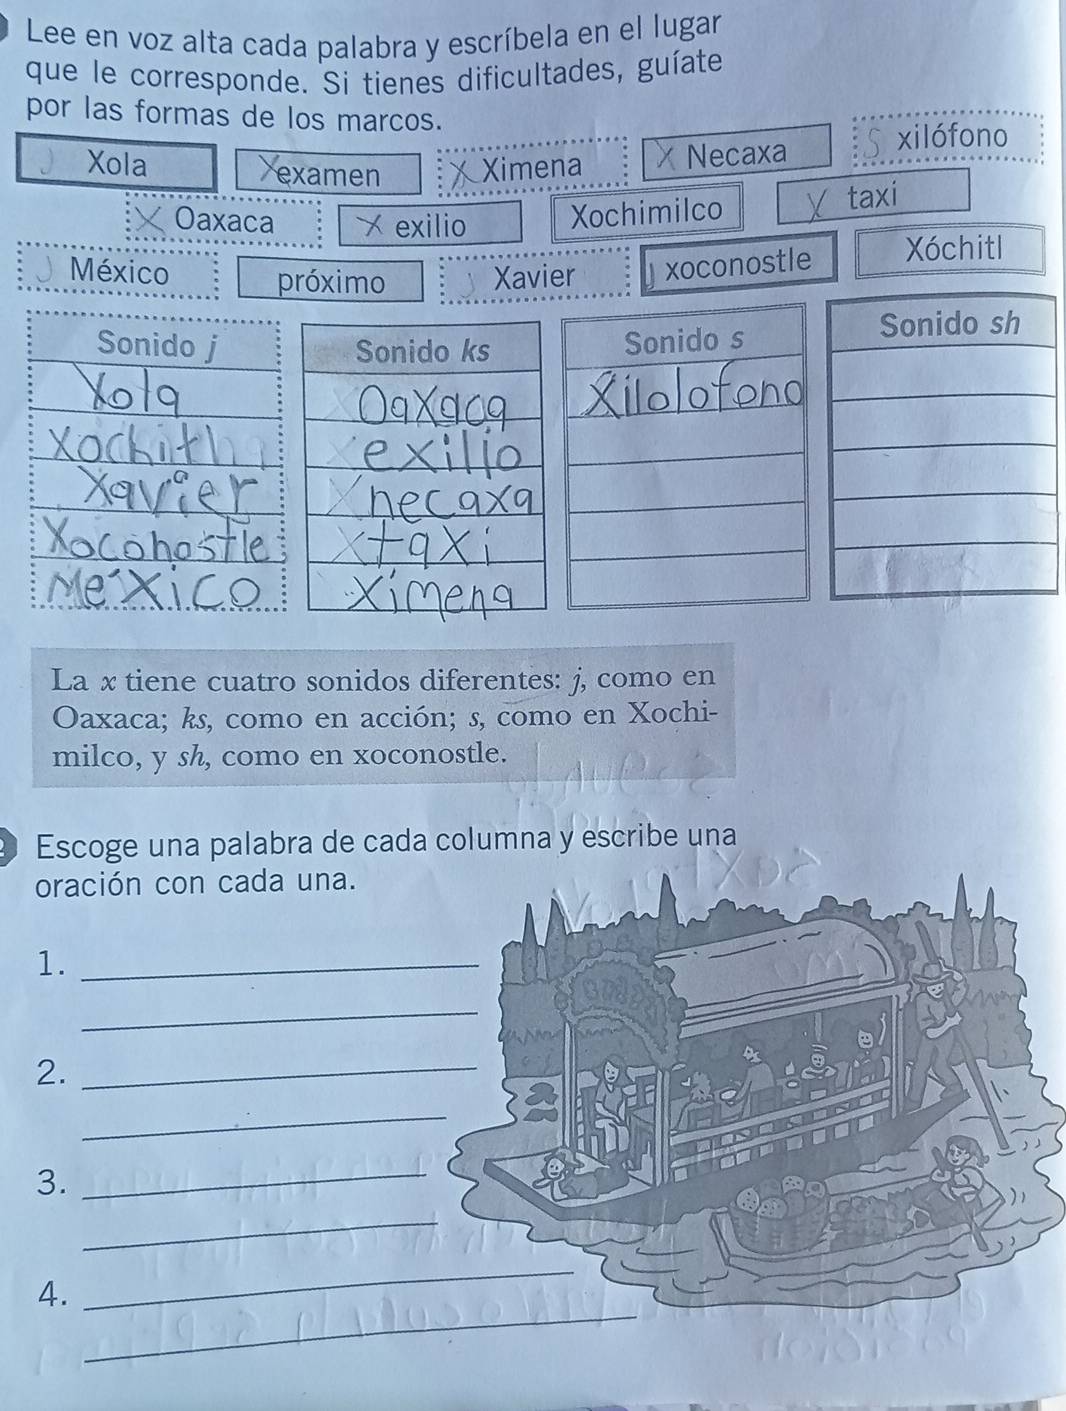 Lee en voz alta cada palabra y escríbela en el lugar
que le corresponde. Si tienes dificultades, guíate
por las formas de los marcos.
J Xola
X examen
X Ximena
X Necaxa
S xilófono
X Oaxaca
X exilio
Xochimilco
X taxi
J México
próximo
J Xavier
J xoconostle
Xóchitl
Sonido j
Xola
Xochitl
Xavier
Xoconostle
MéXico
Sonido ks
OaXaca
exilio
necaxa
taxi
Ximena
Sonido s
Xilolofono
Sonido sh
La x tiene cuatro sonidos diferentes: j, como en
Oaxaca; ks, como en acción; s, como en Xochi-
milco, y sh, como en xoconostle.
2 Escoge una palabra de cada columna y escribe una
oración con cada una.
1.
2.
3.
4.